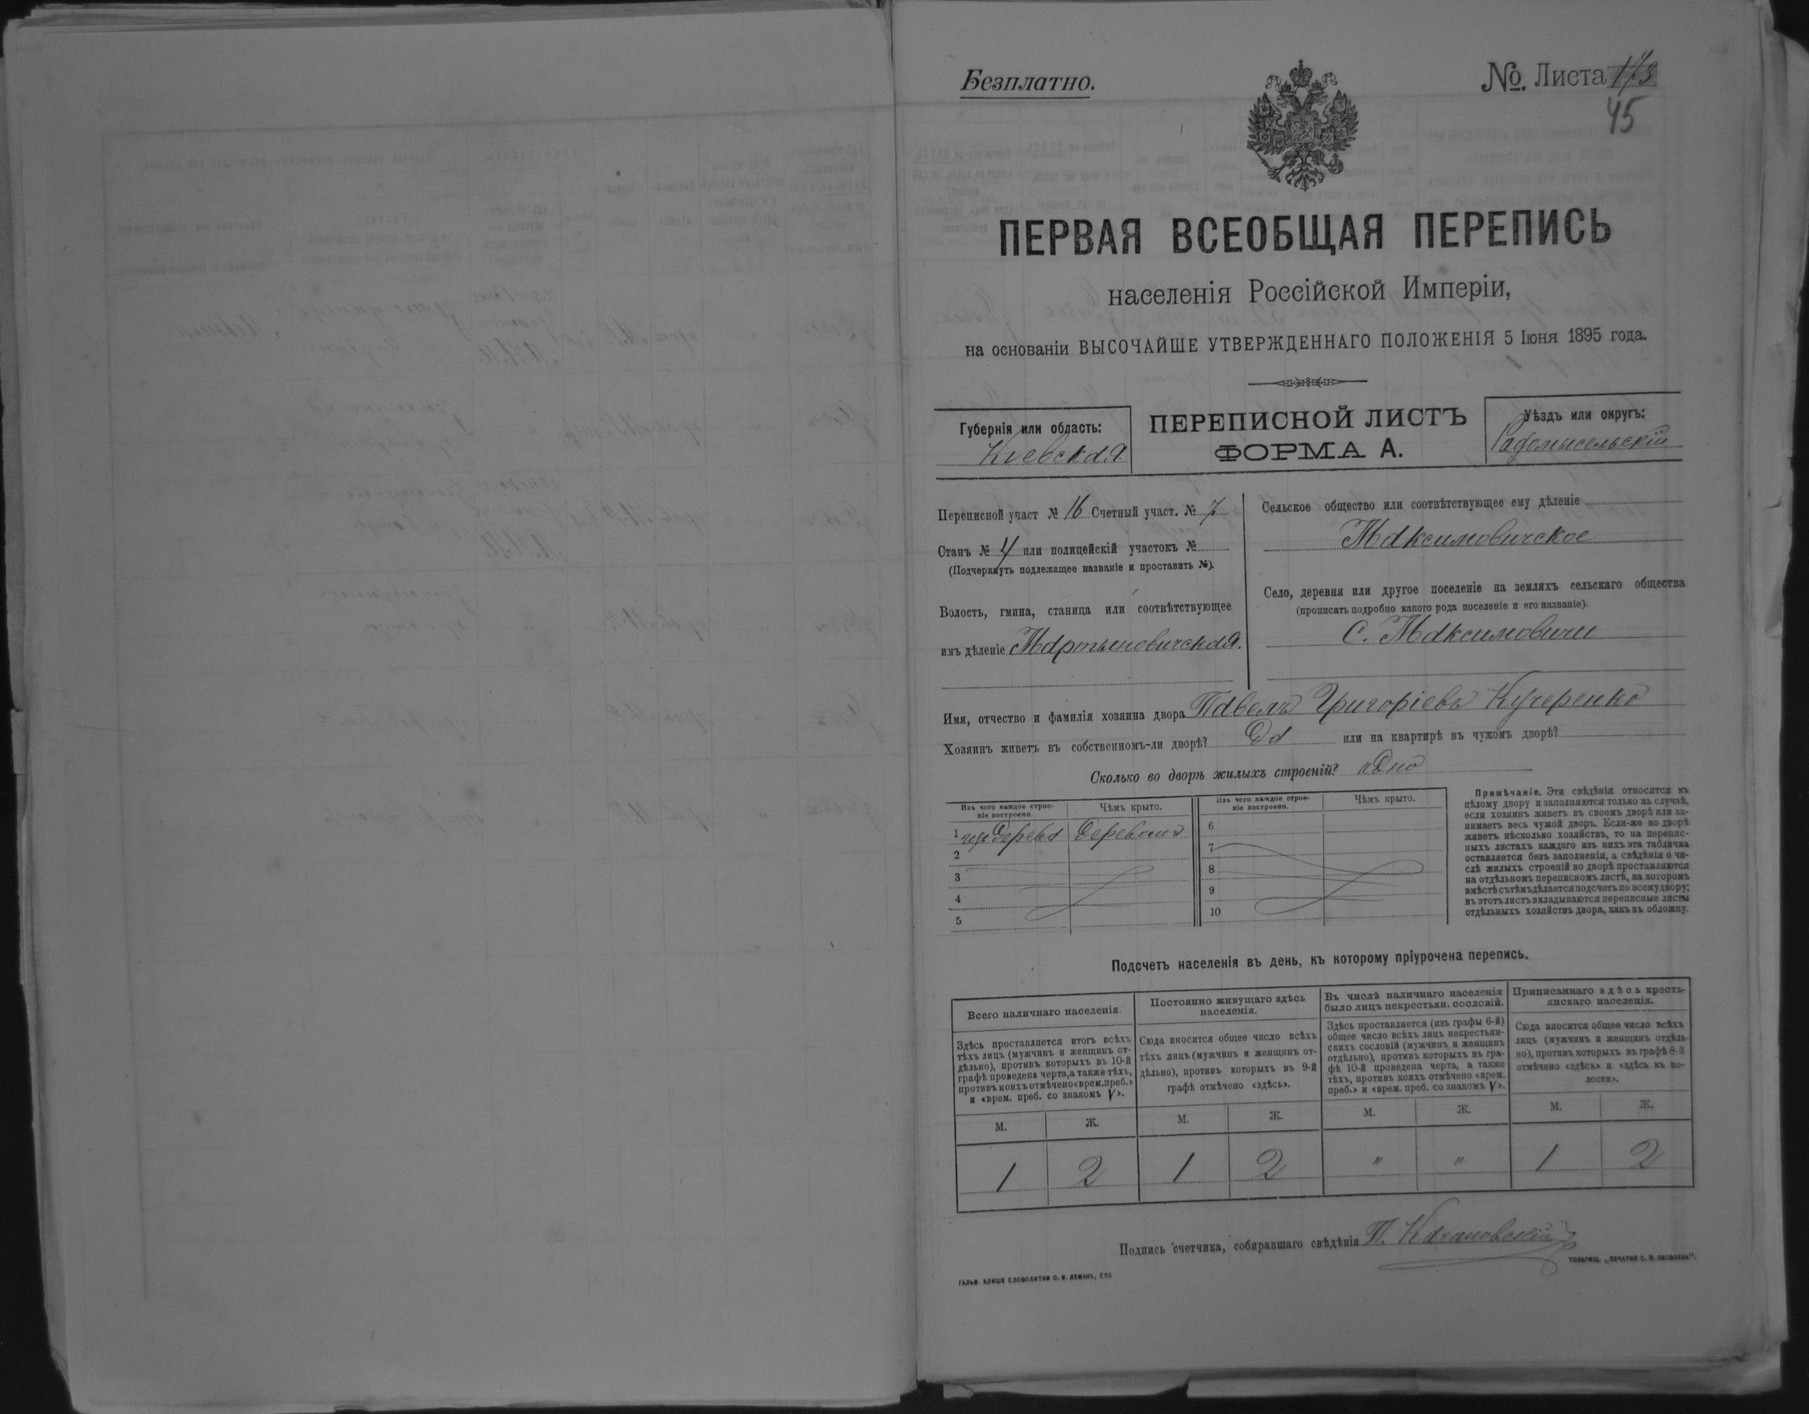 Безплатно.
№. Листа 173
45
ПЕРВАЯ ВСЕОБЩАЯ ПЕРЕПИСЬ
населенія Россійской Имперіи,
на основаніи ВЫСОЧАЙШЕ УТВЕРЖДЕННАГО ПОЛОЖЕНІЯ 5 Іюня 1895 года.
Губернія или область:
Кіевская
ПЕРЕПИСНОЙ ЛИСТЪ
ФОРМА А.
Уѣздъ или округъ:
Радомысельскій
Переписной участ № 16 Счетный участ. № 7
Станъ № 4 или полицейскій участокъ №
(Подчеркнуть подлежащее названіе и проставить №).
Волость, гмина, станица или соотвѣтствующее
имъ дѣленіе Мартыновичская.
Сельское общество или соотвѣтствующее ему дѣленіе
Максимовичское
Село, деревня или другое поселеніе на земляхъ сельскаго общества
(прописать подробно какого рода поселеніе и его названіе).
С. Максимовичи
Имя, отчество и фамилія хозяина двора Павелъ Григоріевъ Кучеренко
Хозяинъ живетъ въ собственномъ-ли дворѣ? Да или на квартирѣ въ чужомъ дворѣ?
Сколько во дворѣ жилыхъ строеній? одно
Изъ чего каждое строе-
ніе построено.
Чѣмъ крыто.
1 изъ дерева деревомъ
2
3
4
5
Изъ чего каждое строе-
ніе построено.
Чѣмъ крыто.
6
7
8
9
10
Примѣчаніе. Эти свѣдѣнія относятся къ
цѣлому двору и заполняются только въ случаѣ,
если хозяинъ живетъ въ своемъ дворѣ или за-
нимаетъ весь чужой дворъ. Если-же во дворѣ
живетъ нѣсколько хозяйствъ, то на перепис-
ныхъ листахъ каждаго изъ нихъ эта табличка
оставляется безъ заполненія, а свѣдѣнія о чи-
слѣ жилыхъ строеній во дворѣ проставляются
на отдѣльномъ переписномъ листѣ, на которомъ
вмѣстѣ съ тѣмъ дѣлается подсчетъ по всему двору;
въ этотъ листъ вкладываются переписные листы
отдѣльныхъ хозяйствъ двора, какъ въ обложку.
Подсчетъ населенія въ день, къ которому пріурочена перепись.
Всего наличнаго населенія.
Здѣсь проставляется итогъ всѣхъ
тѣхъ лицъ (мужчинъ и женщинъ от-
дѣльно), противъ которыхъ въ 10-й
графѣ проведена черта, а также тѣхъ,
противъ коихъ отмѣчено «врем. преб.»
и «врем. преб. со знакомъ V».
М. Ж.
1 2
Постоянно живущаго здѣсь
населенія.
Сюда вносится общее число всѣхъ
тѣхъ лицъ (мужчинъ и женщинъ от-
дѣльно), противъ которыхъ въ 9-й
графѣ отмѣчено «здѣсь».
М. Ж.
1 2
Въ числѣ наличнаго населенія
было лицъ некрестьян. сословій.
Здѣсь проставляется (изъ графы 6-й)
общее число всѣхъ лицъ некрестьян-
скихъ сословій (мужчинъ и женщинъ
отдѣльно), противъ которыхъ въ гра-
фѣ 10-й проведена черта, а также
тѣхъ, противъ коихъ отмѣчено «врем.
преб.» и «врем. преб. со знакомъ V».
М. Ж.
" "
Приписаннаго здѣсь кресть-
янскаго населенія.
Сюда вносится общее число всѣхъ
лицъ (мужчинъ и женщинъ отдѣль-
но), противъ которыхъ въ графѣ 8-й
отмѣчено «здѣсь» и «здѣсь къ во-
лости».
М. Ж.
1 2
Подпись счетчика, собиравшаго свѣдѣнія П. Качановскій
ГАЛЬВ. КЛИШЕ СЛОВОЛИТНИ О. И. ЛЕМАНЪ, СПБ
ТОВАРИЩ. „ПЕЧАТНЯ С. П. ЯКОВЛЕВА".